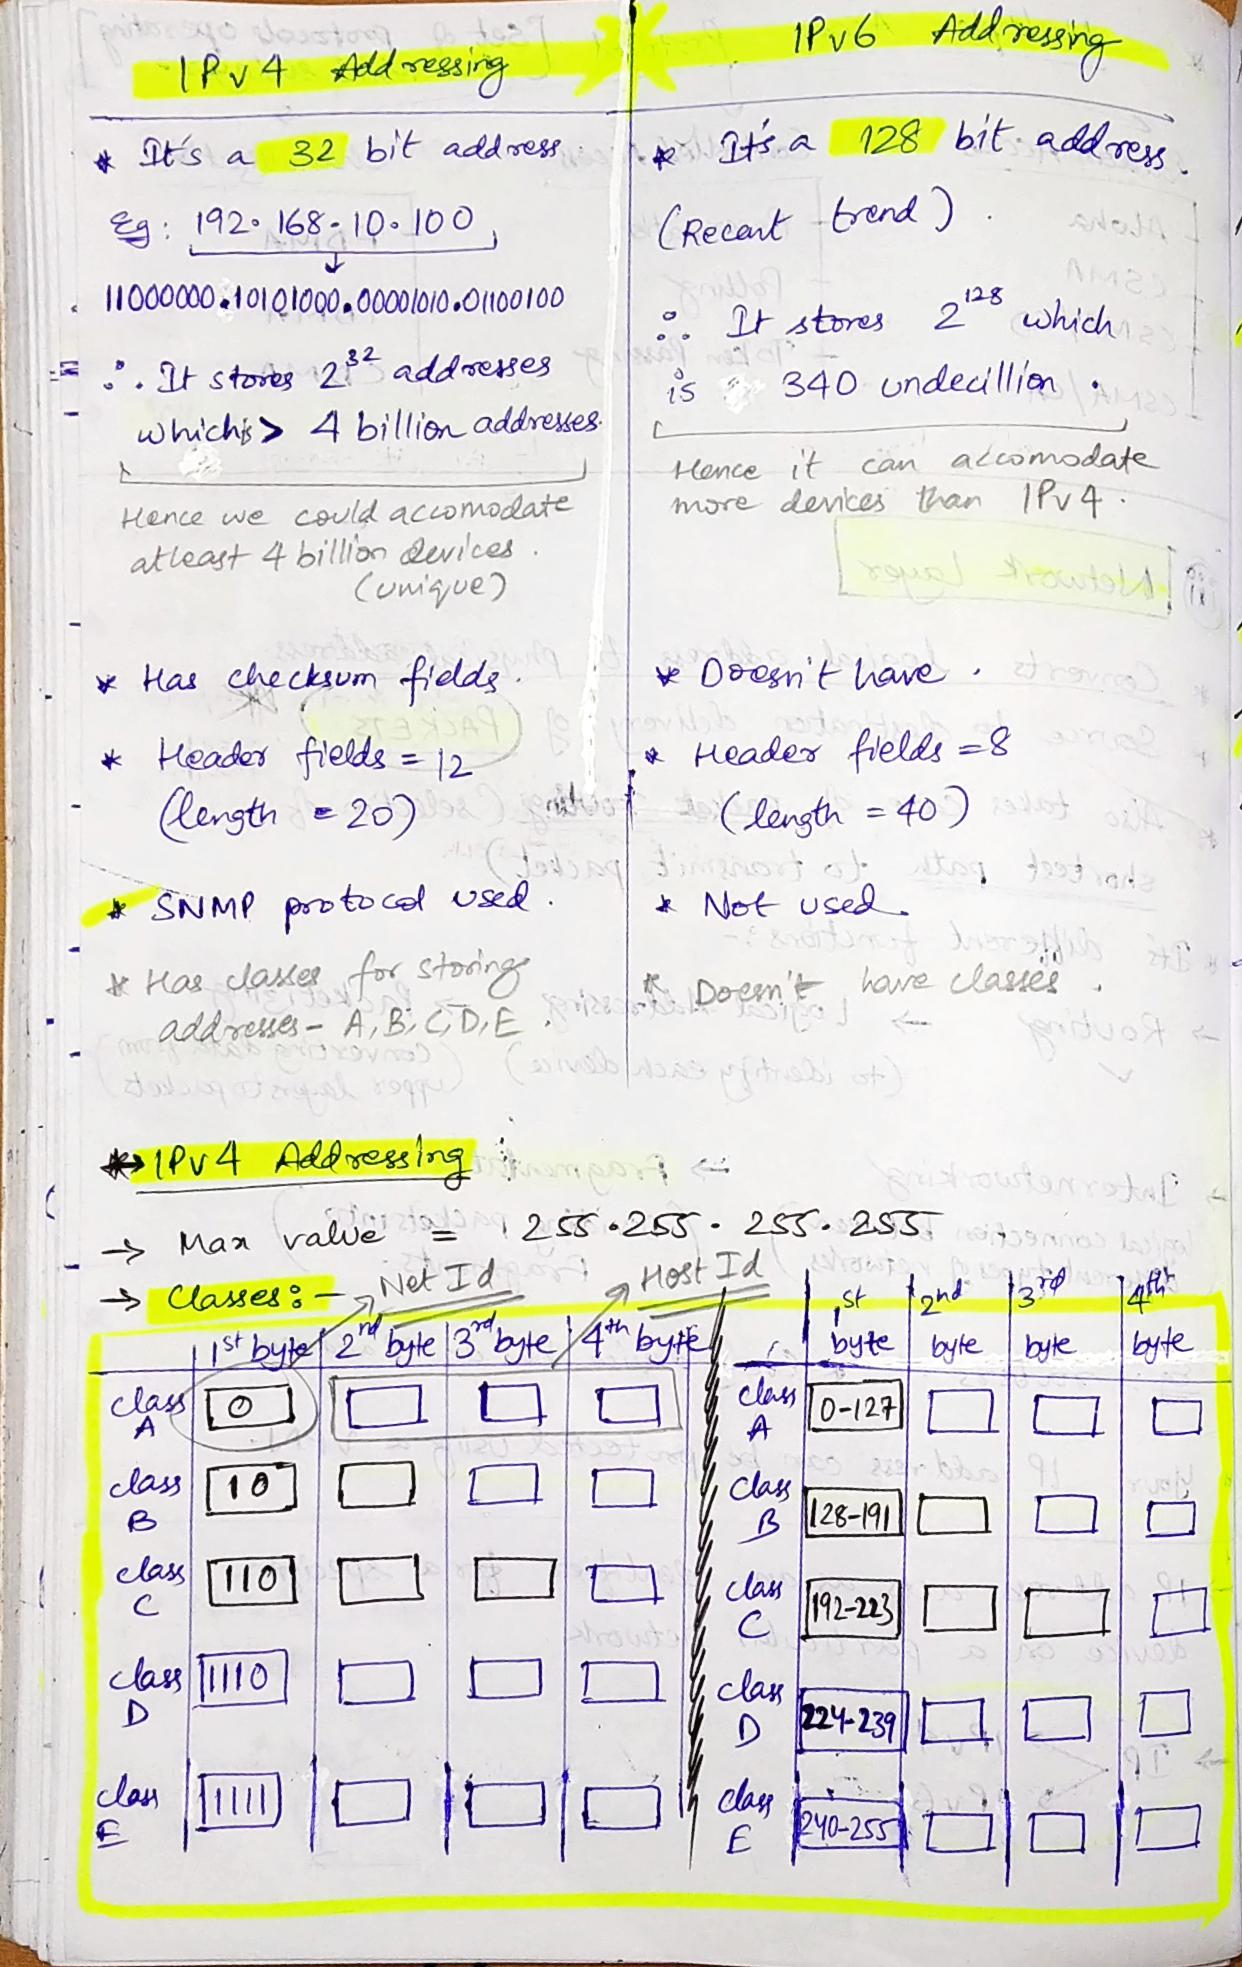 IPv4 Addressing
* It's a 32 bit address.
Eg: 192.168.10.100
11000000.10101000.00001010.01100100
∴ It stores 2^32 addresses
which is > 4 billion addresses.
Hence we could accomodate
atleast 4 billion devices.
(unique)
* Has checksum fields.
* Header fields = 12
(length = 20)
* SNMP protocol used.
* Has classes for storing
addresses - A, B, C, D, E.
IPv6 Addressing
* It's a 128 bit address.
(Recent trend).
∴ It stores 2^128 which
is 340 undecillion.
Hence it can accomodate
more devices than IPv4.
* Doesn't have.
* Header fields = 8
(length = 40)
* Not used.
* Doesn't have classes.
*→ IPv4 Addressing :
→ Max value = 255.255.255.255
→ Classes:- Net Id Host Id
1st byte 2nd byte 3rd byte 4th byte
class A 0
class B 10
class C 110
class D 1110
class E 1111
1st byte 2nd byte 3rd byte 4th byte
class A 0-127
class B 128-191
class C 192-223
class D 224-239
class E 240-255